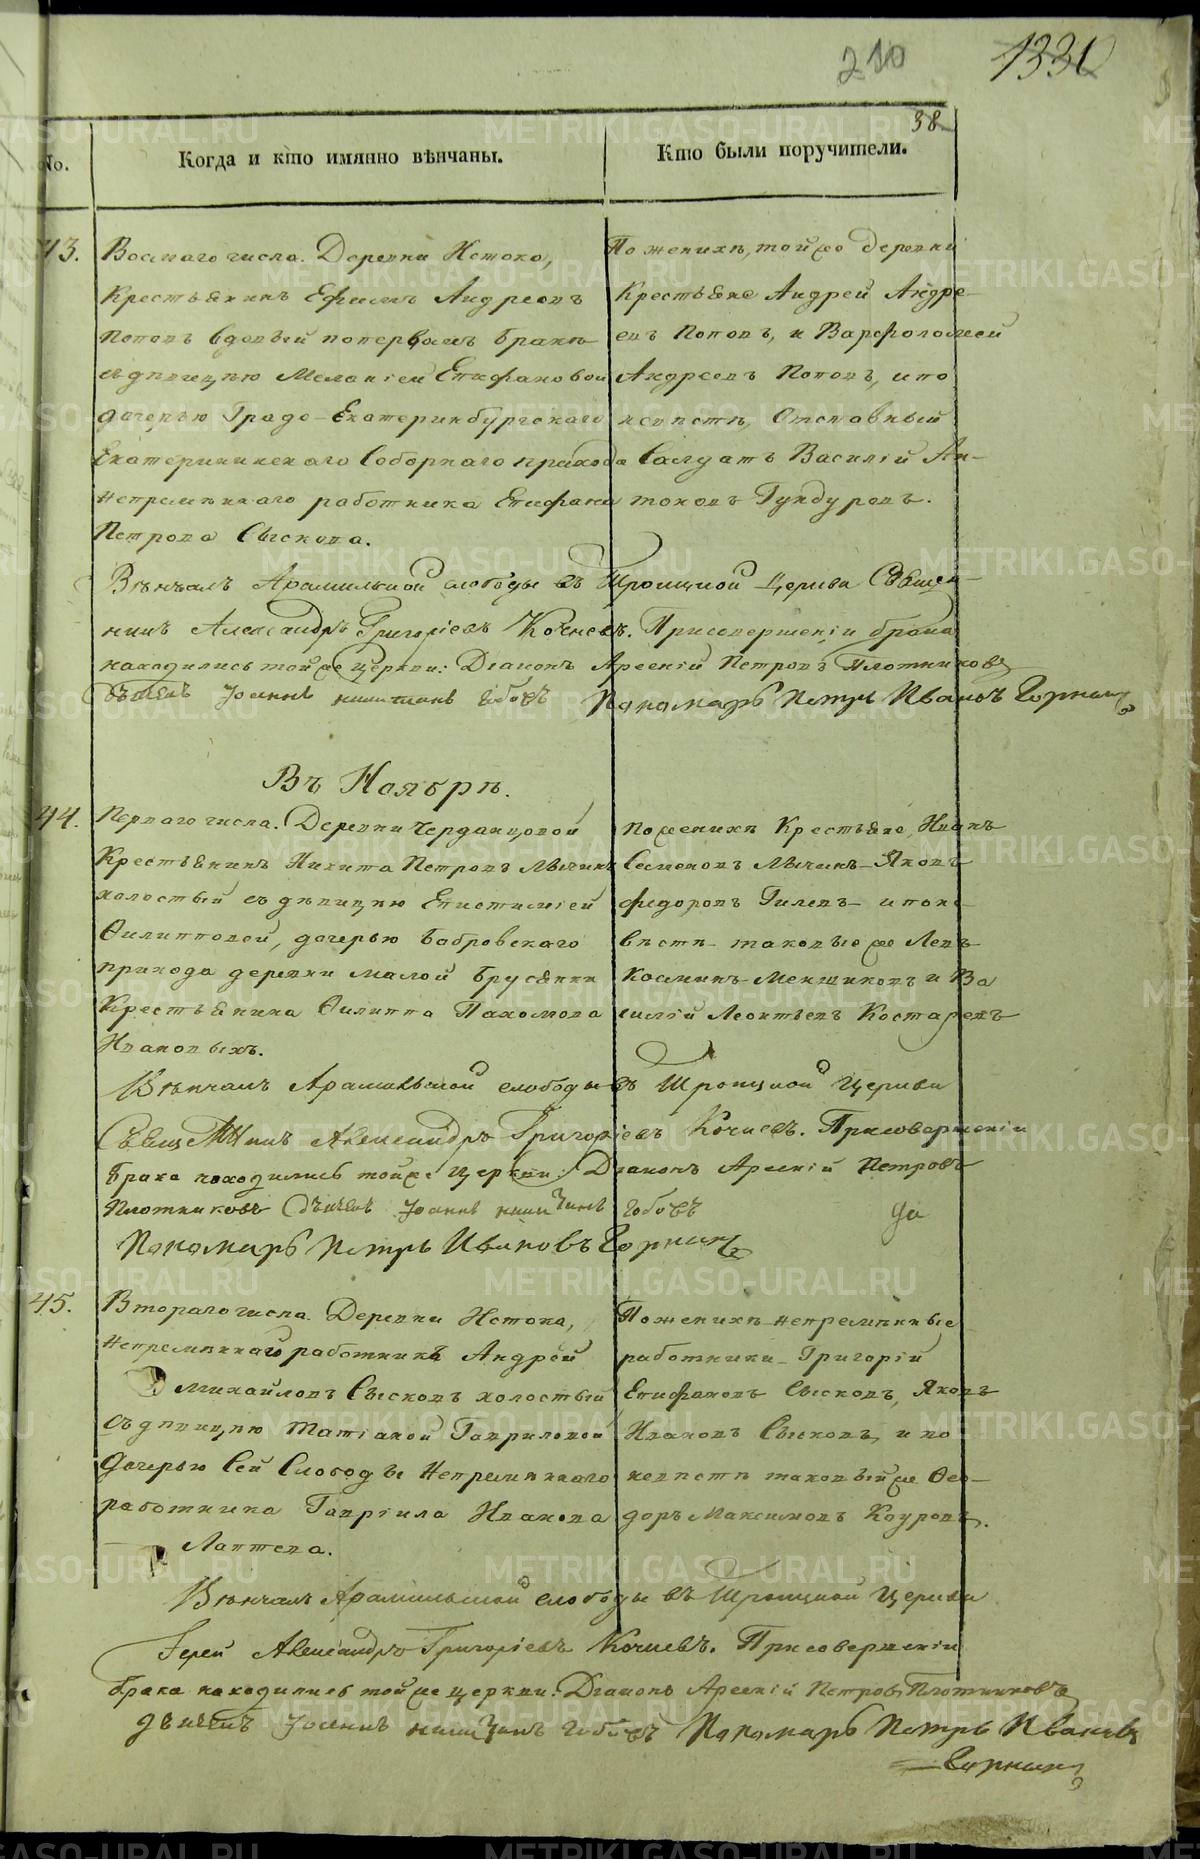 210
1331
38
No.
Когда и кто имянно вѣнчаны.
Кто были поручители.
43.
Восмаго числа. Деревни Истока,
Крестьянинъ Ефимъ Андреевъ
Поповъ вдовый поперьвымъ бракѣ
съ дѣвицею Меланіей Епифановой
дочерью Градо-Екатеринбургскаго
Екатерининскаго Соборнаго прихода
непремѣннаго работника Епифана
Петрова Сыскова.
По женихѣ, той же деревни
Крестьяне Андрей Андре-
евъ Поповъ, и Варфоломей
Андреевъ Поповъ, и по
невѣстѣ, Отставный
Салдатъ Василій Ан-
тоновъ Гундуровъ.
Вѣнчалъ Арамильской слободы въ Троицкой Церкви Священ-
никъ Александръ Григорьевъ Кочневъ. При совершеніи брака
находились той же Церкви: Діаконъ Арсеній Петровъ Плотниковъ
Іоаннъ
Пономарь Петръ Ивановъ Горнихъ
Въ Ноябрѣ.
44.
Перваго числа. Деревни Черданцовой
Крестьянинъ Никита Петровъ Лычинъ
холостый съ дѣвицею Епистиміей
Филипповой, дочерью Бобровскаго
прихода деревни Малой Брусянки
Крестьянина Филиппа Пахомова
Ивановыхъ.
По женихѣ Крестьяне, Иванъ
Семеновъ Лычинъ - Яковъ
Федоровъ Гилевъ - и по не-
вѣстѣ - таковые же Левъ
Косминъ Меншиковъ и Ва
силій Леонтьевъ Костаревъ
Вѣнчалъ Арамильской слободы въ Троицкой Церкви
Священникъ Александръ Григорьевъ Кочневъ. При совершеніи
брака находились той же Церкви: Діаконъ Арсеній Петровъ
Плотниковъ Іоаннъ
Пономарь Петръ Ивановъ Горнихъ
45.
Втораго числа. Деревни Истока,
Непремѣннаго работникъ Андрей
Михайловъ Сысковъ холостый
съ дѣвицею Татіаной Гавриловой
дочерью Сей Слободы Непремѣннаго
работника Гавріила Иванова
Лаптева.
По женихѣ непремѣнные
работники - Григорій
Епифановъ Сысковъ, Яковъ
Ивановъ Сысковъ, и по
невѣстѣ таковый же Фео-
доръ Максимовъ Коуровъ.
Вѣнчалъ Арамильской слободы въ Троицкой Церкви
Іерей Александръ Григорьевъ Кочневъ. При совершеніи
брака находились той же церкви: Діаконъ Арсеній Петровъ Плотниковъ
Іоаннъ Пономарь Петръ Ивановъ
Горнихъ
METRIKI.GASO-URAL.RU